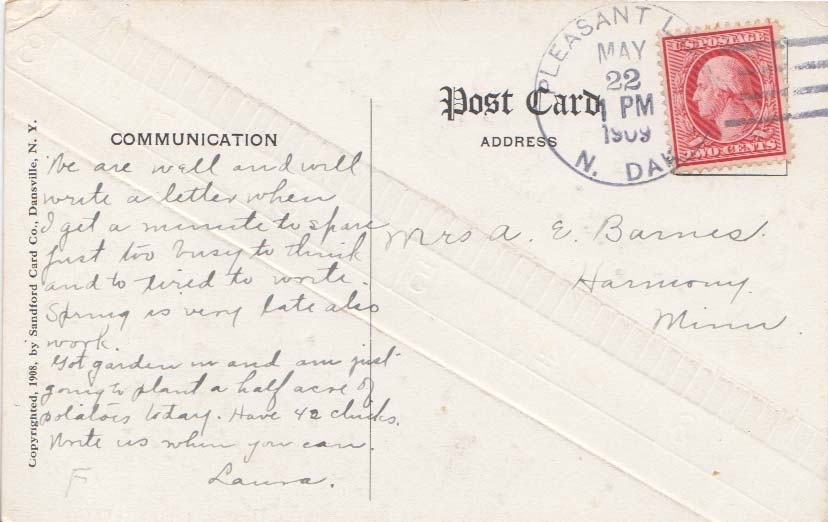 Copyrighted, 1908, by Sandford Card Co., Dansville, N. Y.
COMMUNICATION
We are well and will
write a letter when
I get a minute to spare
just too busy to think
and to tired to write.
Spring is very late also
work.
Got garden in and am just
going to plant a half acre of
potatoes today. Have 42 chicks.
Write us when you can.
Laura.
F
Post Card
ADDRESS
PLEASANT L
MAY
22
1 PM
1909
N. DAK
U.S. POSTAGE
TWO CENTS
Mrs A. E. Barnes.
Harmony.
Minn.